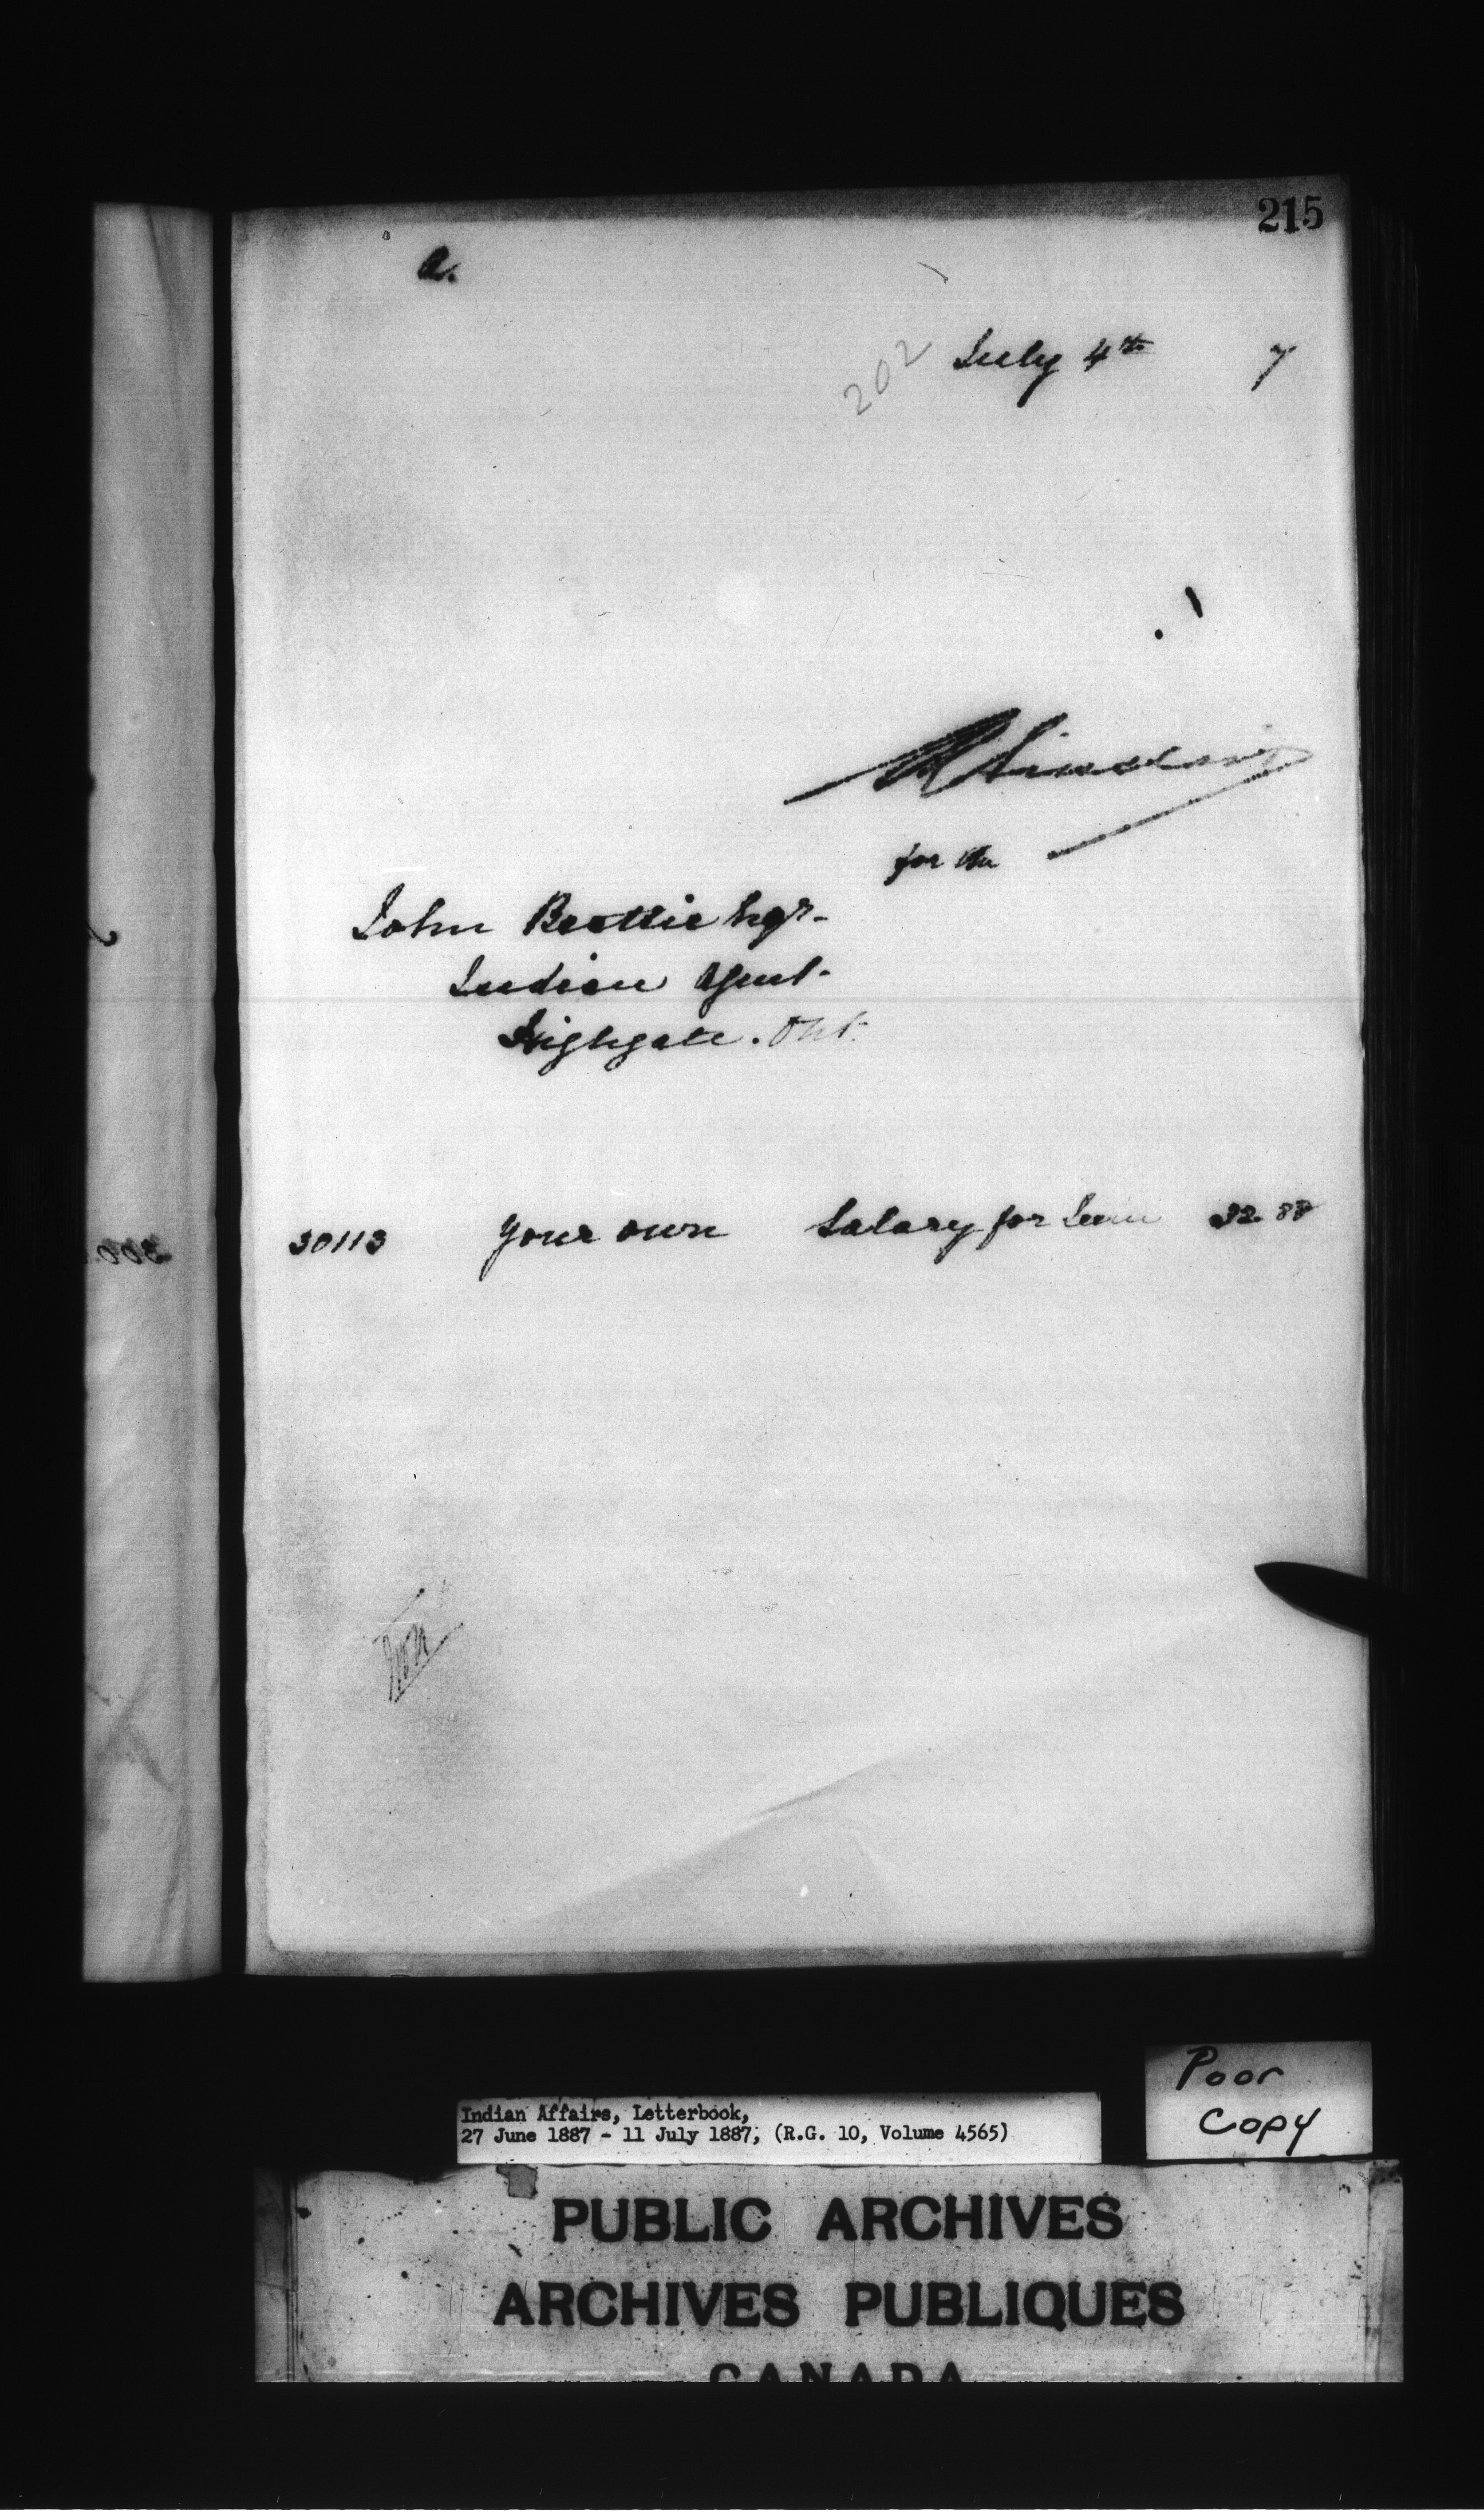 215
a.
202
July 4th 7
R Sinclair
for the
John Beattie Esqr-
Indian Agent-
Highgate. Ont.
30113 Your own Salary for June 32.88
Indian Affairs, Letterbook,
27 June 1887 - 11 July 1887, (R.G. 10, Volume 4565)
Poor
Copy
PUBLIC ARCHIVES
ARCHIVES PUBLIQUES
CANADA